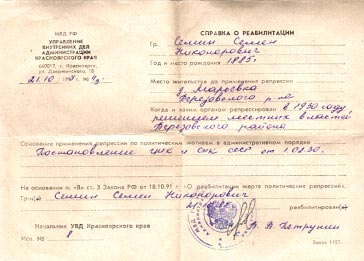 МВД РФ
УПРАВЛЕНИЕ
ВНУТРЕННИХ ДЕЛ
АДМИНИСТРАЦИИ
КРАСНОЯРСКОГО КРАЯ
660017, г. Красноярск,
ул. Дзержинского, 18
21.10 №
СПРАВКА О РЕАБИЛИТАЦИИ
Гр. Семин Семен
Никонорович
Год и место рождения 1885г.
Место жительства до применения репрессии
д. Марьевка
Березовского р-на
Когда и каким органом репрессирован в 1930 году
решением местных властей
Березовского района
Основание применения репрессии по политическим мотивам в административном порядке
Постановление ЦИК и СНК СССР от 1.02.30.
На основании п. «В» ст. 3 Закона РФ от 18.10.91 г. «О реабилитации жертв политических репрессий».
Гр-н(а) Семин Семен Никонорович
реабилитирован(а)
Начальник УВД Красноярского края
В. А. Петрунин
Исп. № 8
Заказ 1157.